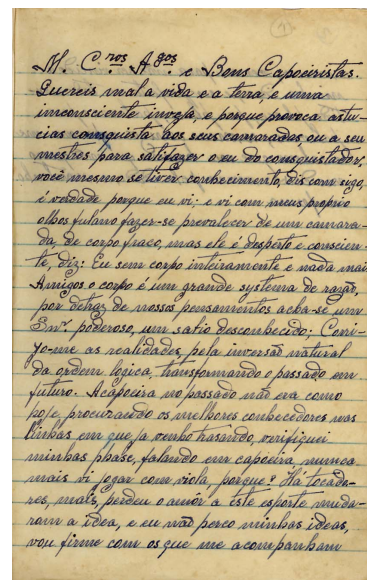 (1)
M. C.ros A.gos e Bons Capoeiristas.
Quereis mal a vida e a terra, é uma
inconsciente inveja, e porque provoca astu-
cias consquista aos seus camaradas ou a seu
mestres, para satisfazer o eu do consquistador,
você mesmo se tiver conhecimento, dis com sigo,
é verdade porque eu vi; e vi com meus proprio
olhos fulano fazer-se prevalecer de um camara-
da, de corpo fraco, mas ele é desperto e conscien-
te, diz: Eu sem corpo inteiramente e nada mai
Amigos o corpo é um grande systema de razão,
por detraz de nossos pensamentos acha-se um
Snr. poderoso, um sabio desconhecido; Corri-
jo-me as realidades, pela inversão natural
da ordem lógica, transformando o passado em
futuro. A capoeira no passado não era como
hoje, procurando os melhores conhecedores nas
linhas em que ja venho trasando, verifiquei
minhas phase, falando em capoeira, nunca
mais vi jogar com viola, porque? Há tocado-
res, mais, perdeu o amôr a este esporte muda-
ram a idea, e eu não perco minhas ideas,
vou firme com os que me acompanham